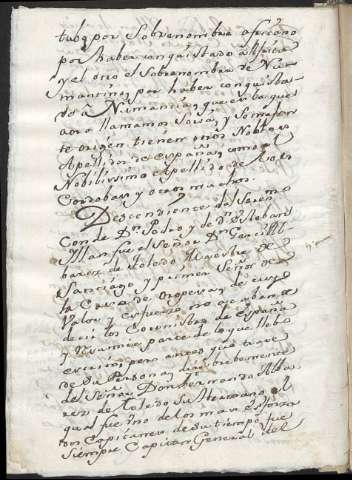 tubo por Sobrenombre africano
por haber conquistado Africa
y el otro el Sobrenombre de Nu
mantino por haber conquista
do a Numancia, que es la que
aora llamamos Soria, y Semejan
te origen tienen otros Nobles
Apellidos de España como el
Nobilissimo Apellido de
Cordoba y otros muchos.
Descendiente del Seren.mo
Conde D.n Pedro y de D.n Esteban
Yllan fue el Señor D.n Garci Al
barez de Toledo Maestre de
Santiago y primer Señor de
la Casa de Oropesa de cuyo
Valor y esfuerzo no acaban de
decir los Coronistas de España
y Yo omito parte de lo que llebo
escrito pero
de Su Persona y
del Señor Don Fernando Alba
rez de Toledo Su Hermano el
qual fue Uno de los mas esforza
dos Capitanes de Su tiempo fue
Siempre Capitan General del